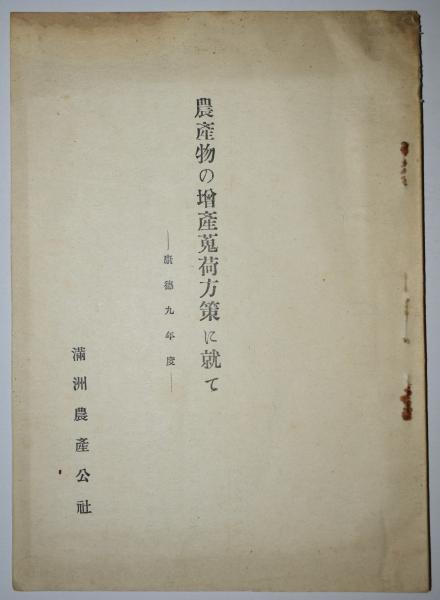 農產物の增產蒐荷方策に就て
―康德九年度―
滿洲農產公社